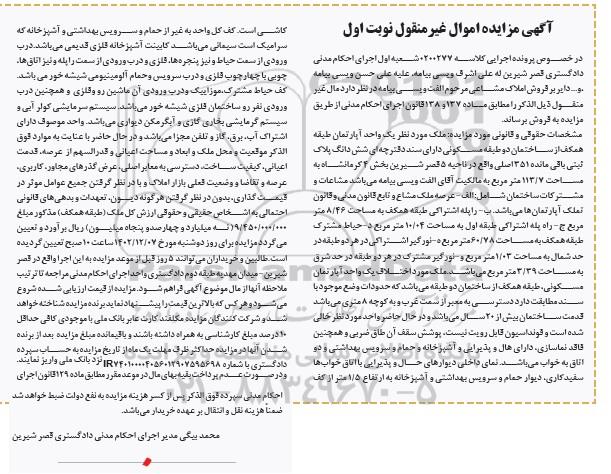 آگهی مزایده اموال غیر منقول نوبت اول
در خصوص پرونده اجرایی کلاسه ۰۲۰۰۲۷۷ شعبه اول اجرای احکام مدنی
دادگستری قصر شیرین له علی اشرف ویسی بیامه، علیه علی حسن ویسی بیامه
و...دایر بر فروش املاک مشاعی مرحوم الفت ویسی بیامه در نظر دارد مال غیر
منقول ذیل الذکر را مطابق ماده ۱۳۷ و ۱۳۸ قانون اجرای احکام مدنی از طریق
مزایده به فروش برساند.
مشخصات حقوقی و قانونی مورد مزایده: ملک مورد نظر یک واحد آپارتمان طبقه
همکف از ساختمان دو طبقه مسکونی دارای سند دفترچه ای شش دانگ پلاک
ثبتی باقی مانده ۳۵۱ اصلی واقع در ناحیه ۵ قصر شیرین بخش ۴ کرمانشاه به
مساحت ۱۱۳/۷ متر مربع به مالکیت آقای الفت ویسی بیامه می باشد مشاعات و
مشترکات ساختمان شامل: الف- عرصه ملک مشاع و تابع قانون مدنی و قانون
تملک آپارتمان ها می باشد. ب- راپله اشتراکی طبقه همکف به مساحت ۸/۴۶ متر
مربع ج- راه پله اشتراکی طبقه اول به مساحت ۱۰/۰۴ متر مربع د- حیاط مشترک
طبقه همکف به مساحت ۶۰/۷۸ متر مربع ه- نورگیر اشتراکی در هر دو طبقه در
حد شمال به مساحت ۱/۰۳ متر و- نورگیر مشترک در هر دو طبقه در حد شرق
به مساحت ۳/۳۹ متر مربع می باشند. ملک مورد اختلاف یک واحد آپارتمان
مسکونی، طبقه همکف از ساختمان دو طبقه می باشد که حدودات وضع موجود با
سند مطابقت دارد دسترسی به معبر از سمت غرب و به کوچه ۸ متری می باشد
قدمت ساختمان بیش از ۲۰ سال می باشد و در حال حاضر واحد مورد نظر خالی
شده است و فونداسیون قابل رویت نیست، پوشش سقف آن طاق ضربی و همچنین
فاقد نماسازی، دارای هال و پذیرایی و آشپزخانه و حمام و سرویس بهداشتی و دو
اتاق به خواب می باشد. نمای داخلی دیوارهای حال و پذیرایی با اتاق خواب ها
سفیدکاری، دیوار حمام و سرویس بهداشتی و آشپزخانه به ارتفاع ۱/۵ متر از کف
کاشی است. کف کل واحد به غیر از حمام و سرویس بهداشتی و آشپزخانه که
سرامیک است سیمانی می باشد کابینت آشپزخانه فلزی قدیمی می باشد. درب
ورودی از سمت حیاط و نیز پنجره ها، فلزی و درب ورودی از سمت راپله و نیز اتاق ها،
چوبی با چهارچوب فلزی و درب سرویس و حمام آلومینیومی شیشه خور می باشد.
کف حیاط مشترک، موزاییک و درب ورودی آن ماشین رو و فلزی و همچنین درب
ورودی نفر رو ساختمان فلزی شیشه خور می باشد. سیستم سرمایشی کولر آبی و
سیستم گرمایشی بخاری گازی و آبگرمکن دیواری می باشد. واحد موصوف دارای
اشتراک آب، برق، گاز و تلفن مجزا می باشد و در حال حاضر با عنایت به موارد فوق
الذکر موقعیت و محل ملک و ابعاد و مساحت اعیانی و قدرالسهم از عرصه، قدمت
اعیانی، کیفیت ساخت، دسترسی به معابر اصلی، عرض گذرهای مجاور، کاربری،
عرصه و تقاضا و وضعیت فعلی بازار املاک و با در نظر گرفتن جمیع عوامل موثر در
قیمت گذاری، بدون در نظر گرفتن هر گونه دیون، تعهدات و بدهی های قانونی
احتمالی به اشخاص حقیقی و حقوقی ارزش کل ملک (طبقه همکف) مذکور مبلغ
۹/۴۵۰/۰۰۰/۰۰۰ (نه میلیارد و چهارصدو پنجاه میلیون) ریال برآورد و تعیین
می گردد مزایده برای روز دوشنبه مورخ ۱۴۰۲/۱۲/۰۷ ساعت ۱۰ صبح تعیین گردیده
است. طالبین و خریداران می توانند ۵ روز قبل از موعد مزایده به این اجرا واقع در قصر
شیرین- میدان مهدیه طبقه دوم دادگستری واحد اجرای احکام مدنی مراجعه تا ترتیب
ملاحظه آنها از مال موضوع آگهی فراهم شود. مزایده از قیمت ارزیابی شده شروع
می شود و هر کس که بالاترین قیمت را پیشنهاد نماید برنده مزایده شناخته خواهد
شد و شرکت کنندگان مزایده مکلفند کارت عابر بانک ملی با موجودی کافی حداقل
۱۰ درصد مبلغ کارشناسی به همراه داشته باشند و باقیمانده مبلغ مزایده بعد از برنده
شدن آنها در مزایده حداکثر ظرف مهلت یک ماه از تاریخ مزایده به حساب سپرده
دادگستری با شماره نزد بانک ملی واریز نمایند.
و در صورت عدم پرداخت بقیه بهای مال در موعد مقرر مطابق ماده ۱۲۹ قانون اجرای
احکام مدنی سپرده فوق الذکر پس از کسر هزینه مزایده به نفع دولت ضبط خواهد شد
ضمنا هزینه نقل و انتقال بر عهده خریدار می باشد.
محمد بیگی مدیر اجرای احکام مدنی دادگستری قصر شیرین